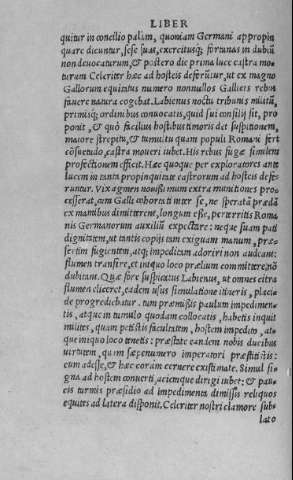 LIBER
quitur in concilio palàm, quoniam Germani appropin
quare dicuntur, sese suas, exercitusq; fortunas in dubiũ
non deuocaturum, & postero die prima luce castra mo-
turum Celeriter hæc ad hosteis deferũtur, ut ex magno
Gallorum equitatus numero nonnullos Gallieis rebus
fauere natura cogebat. Labienus noctu tribunis militũ,
primisq; ordinibus conuocatis, quid sui consilij sit, pro
ponit, & quò facilius hostibus timoris det suspitionem,
maiore strepitu, & tumultu quam populi Romani fert
cõsuetudo, castra moueri iubet. His rebus fugæ similem
profectionem efficit. Hæc quoque per exploratores ante
lucem in tanta propinquitate castrorum ad hosteis defe-
runtur. Vix agmen nouissimum extra munitiones pro-
cesserat, cum Galli cohortati inter se, ne speratã prædã
ex manibus dimitterent, longum esse, perterritis Roma
nis Germanorum auxiliũ expectare: neque suam pati
dignitatem, ut tantis copijs tam exiguam manum, præ-
sertim fugientem, atq; impeditam adoriri non audeant:
flumen transire, et iniquo loco prælium committere nõ
dubitant. Quæ fore suspicatus Labienus, ut omnes citra
flumen eliceret, eadem usus simulatione itineris, placi-
de progrediebatur. tum præmissis paulum impedimen-
tis, atque in tumulo quodam collocatis, habetis inquit
milites, quam petistis facultatem, hostem impedito, at-
que iniquo loco tenetis: præstate eandem nobis ducibus
uirtutem, quam sæpenumero imperatori præstitistis:
eum adesse, & hæc coràm cernere existimate. Simul si-
gna ad hostem conuerti, aciemque dirigi iubet: & pau-
cis turmis præsidio ad impedimenta dimissis reliquos
equites ad latera disponit. Celeriter nostri clamore sub-
lato